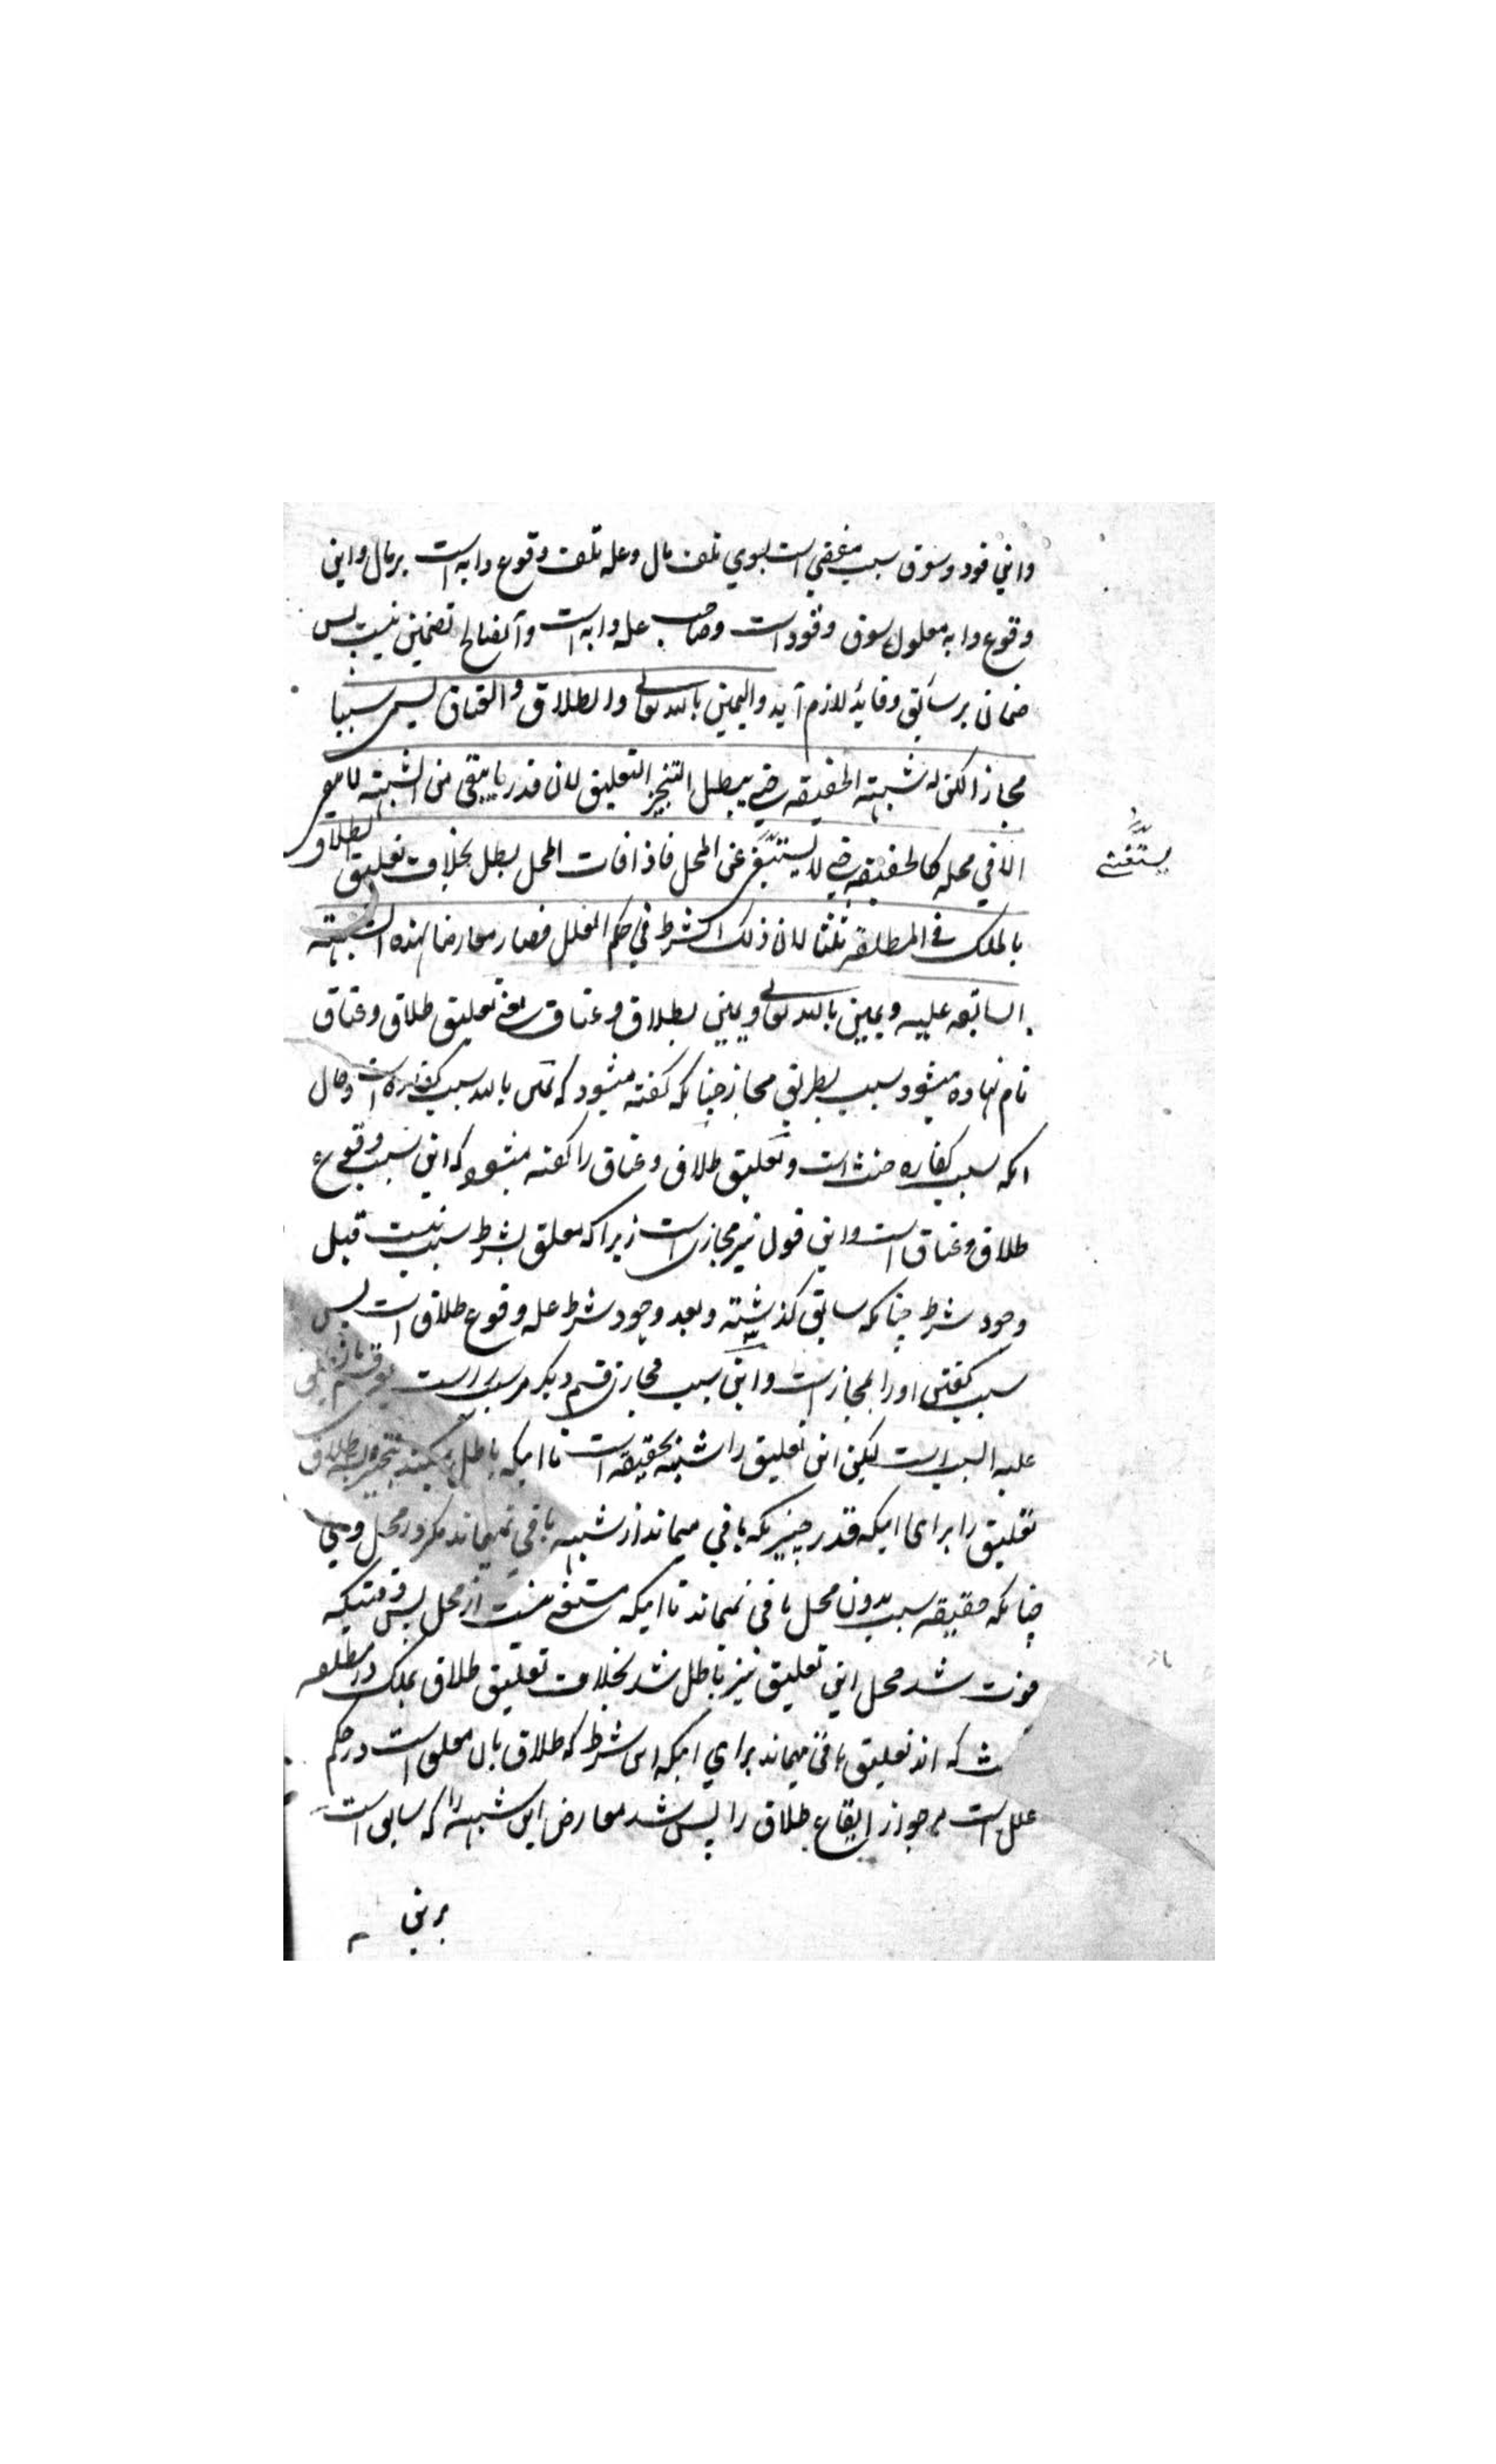 واین قود وسوق سبب مفضی است بسوی تلف مال وعله تلف وقوع دابه است بر مال واین
وقوع دابه معلول سوق وقود است وصاحب عله دابه است وآنصالح تضمین نیست پس
ضمان بر سائق وقائد لازم آید والیمین بالله تعالی والطلاق والعتاق لیس سببا
مجازا لکن له شبهته الحقیقه حتی یبطل التنجیز التعلیق لان قدر ما یبقی من الشبهته لا یبقی
الا فی محله کالحقیقه حتی لا یستغنی عن المحل فاذا فات المحل بطل بخلاف تعلیق الطلاق
بالملک فی المطلقه ثلثا لان ذلک الشرط فی حکم العلل فصار معارضا لهذه الشبهته
السابقه علیه ویمین بالله تعالی ویمین بطلاق وعتاق یعنی تعلیق طلاق وعتاق
نام نهاده میشود سبب بطریق مجاز چنانکه گفته میشود که یمین بالله سبب کفاره است وحال
انکه سبب کفاره حنث است وتعلیق طلاق وعتاق را گفته میشود که این سبب وقوع
طلاق وعتاق است واین قول نیز مجاز است زیرا که معلق بشرط سبب نیست قبل
وجود شرط چنانکه سابق گذشته وبعد وجود شرط عله وقوع طلاق است پس
سبب گفتن اورا مجاز است واین سبب مجازی قسم دیگر مر سبب راست
علیه السبب است لیکن این تعلیق را شبهه حقیقه است تا اینکه باطل میکند تنجیز طلاق
تعلیق را برای اینکه قدر چیزیکه باقی میماند از شبهه باقی نمیماند مگر در محل وی
چنانکه حقیقه سبب بدون محل باقی نمیماند تا اینکه مستغنی نیست از محل پس وقتیکه
فوت شد محل این تعلیق نیز باطل شد بخلاف تعلیق طلاق بملک در مطلقه
ثلث که این تعلیق باقی میماند برای اینکه این شرط که طلاق بان معلق است در حکم
علل است مر جواز ایقاع طلاق را پس شد معارض این شبهه را که سابق است
برین
یستغنی